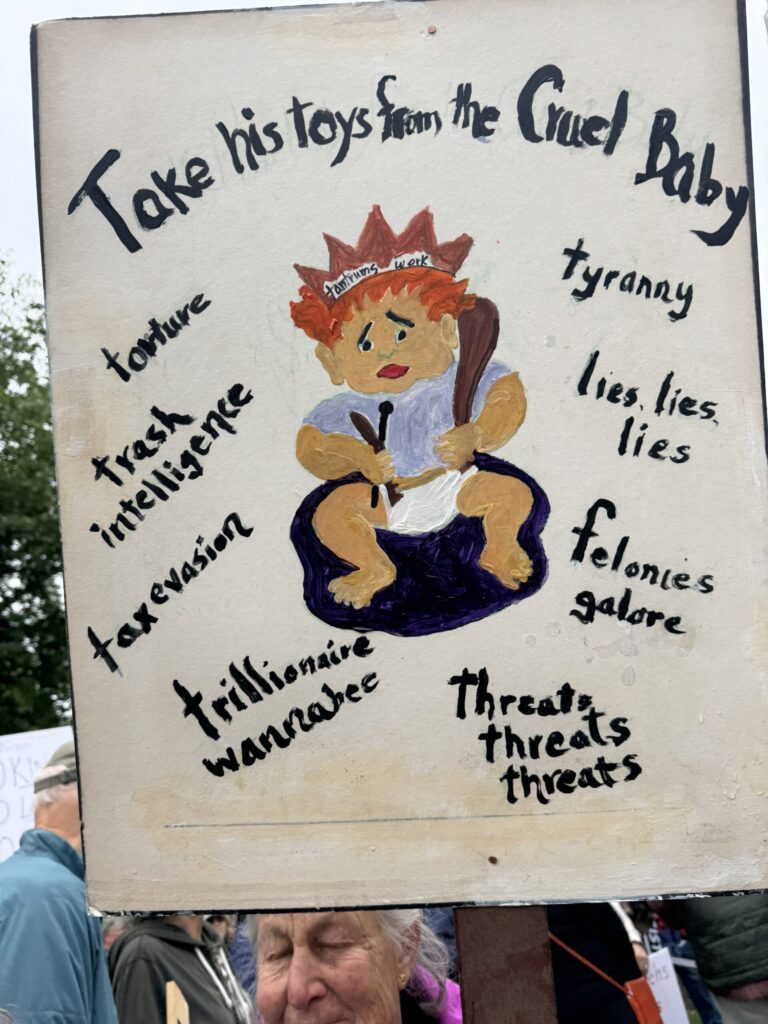 Take his toys from the Cruel Baby
tantrums work
torture
trash
intelligence
tax evasion
trillionaire
wannabee
tyranny
lies, lies,
lies
felonies
galore
Threats,
threats
threats